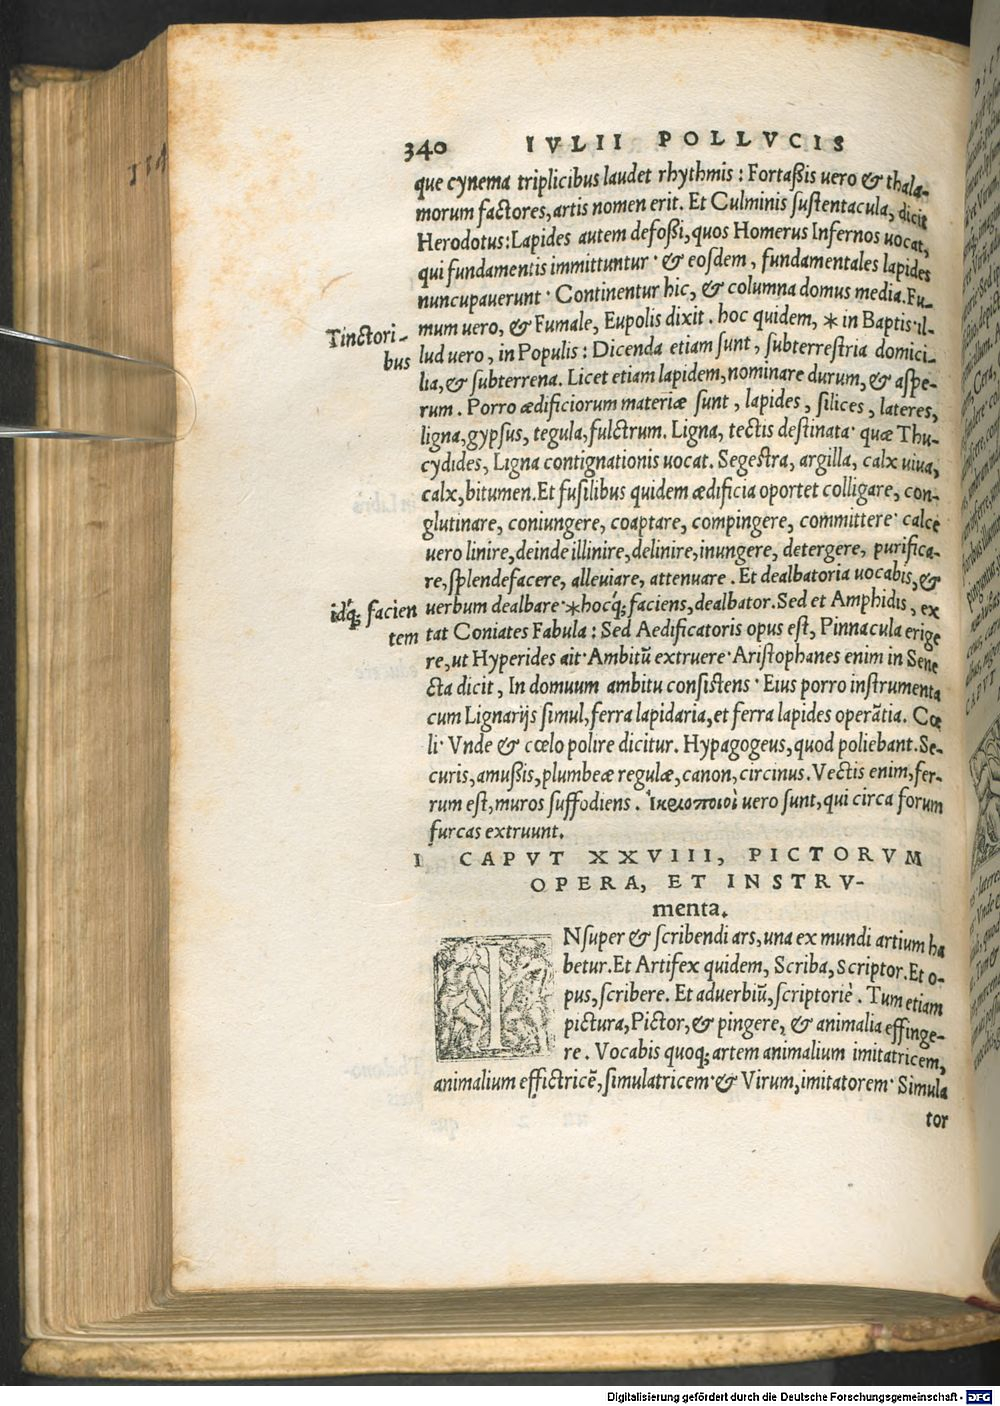 340 IVLII POLLVCIS
que cynema triplicibus laudet rhythmis : Fortaßis uero & thala-
morum factores, artis nomen erit. Et Culminis sustentacula, dicit
Herodotus: Lapides autem defoßi, quos Homerus Infernos uocat,
qui fundamentis immittuntur · & eosdem, fundamentales lapides
nuncupauerunt · Continentur hic, & columna domus media. Fu-
mum uero, & Fumale, Eupolis dixit. hoc quidem, * in Baptis · il-
Tinctori-
bus
lud uero, in Populis : Dicenda etiam sunt, subterrestria domici-
lia, & subterrena. Licet etiam lapidem, nominare durum, & aspe-
rum. Porro ædificiorum materiæ sunt, lapides, silices, lateres,
ligna, gypsus, tegula, fulctrum. Ligna, tectis destinata · quæ Thu-
cydides, Ligna contignationis uocat. Segestra, argilla, calx uiua,
calx, bitumen. Et fusilibus quidem ædificia oportet colligare, con-
glutinare, coniungere, coaptare, compingere, committere · calce
uero linire, deinde illinire, delinire, inungere, detergere, purifica-
re, splendefacere, alleuiare, attenuare. Et dealbatoria uocabis, &
idq́; facien
tem
uerbum dealbare · * hocq́; faciens, dealbator. Sed et Amphidis, ex
tat Coniates Fabula : Sed Aedificatoris opus est, Pinnacula erige
re, ut Hyperides ait · Ambitũ extruere · Aristophanes enim in Sene
cta dicit, In domuum ambitu consistens · Eius porro instrumenta
cum Lignarijs simul, ferra lapidaria, et ferra lapides operãtia. Cœ
li · Vnde & cœlo polire dicitur. Hypagogeus, quod poliebant. Se-
curis, amußis, plumbeæ regulæ, canon, circinus. Vectis enim, fer-
rum est, muros suffodiens. Ἰκριοποιοὶ uero sunt, qui circa forum
furcas extruunt.
I CAPVT XXVIII, PICTORVM
OPERA, ET INSTRV-
menta.
INsuper & scribendi ars, una ex mundi artium ha
betur. Et Artifex quidem, Scriba, Scriptor. Et o-
pus, scribere. Et aduerbiũ, scriptoriè. Tum etiam
pictura, Pictor, & pingere, & animalia effinge-
re. Vocabis quoq; artem animalium imitatricem,
animalium effictricẽ, simulatricem · & Virum, imitatorem · Simula
tor
Digitalisierung gefördert durch die Deutsche Forschungsgemeinschaft - DFG